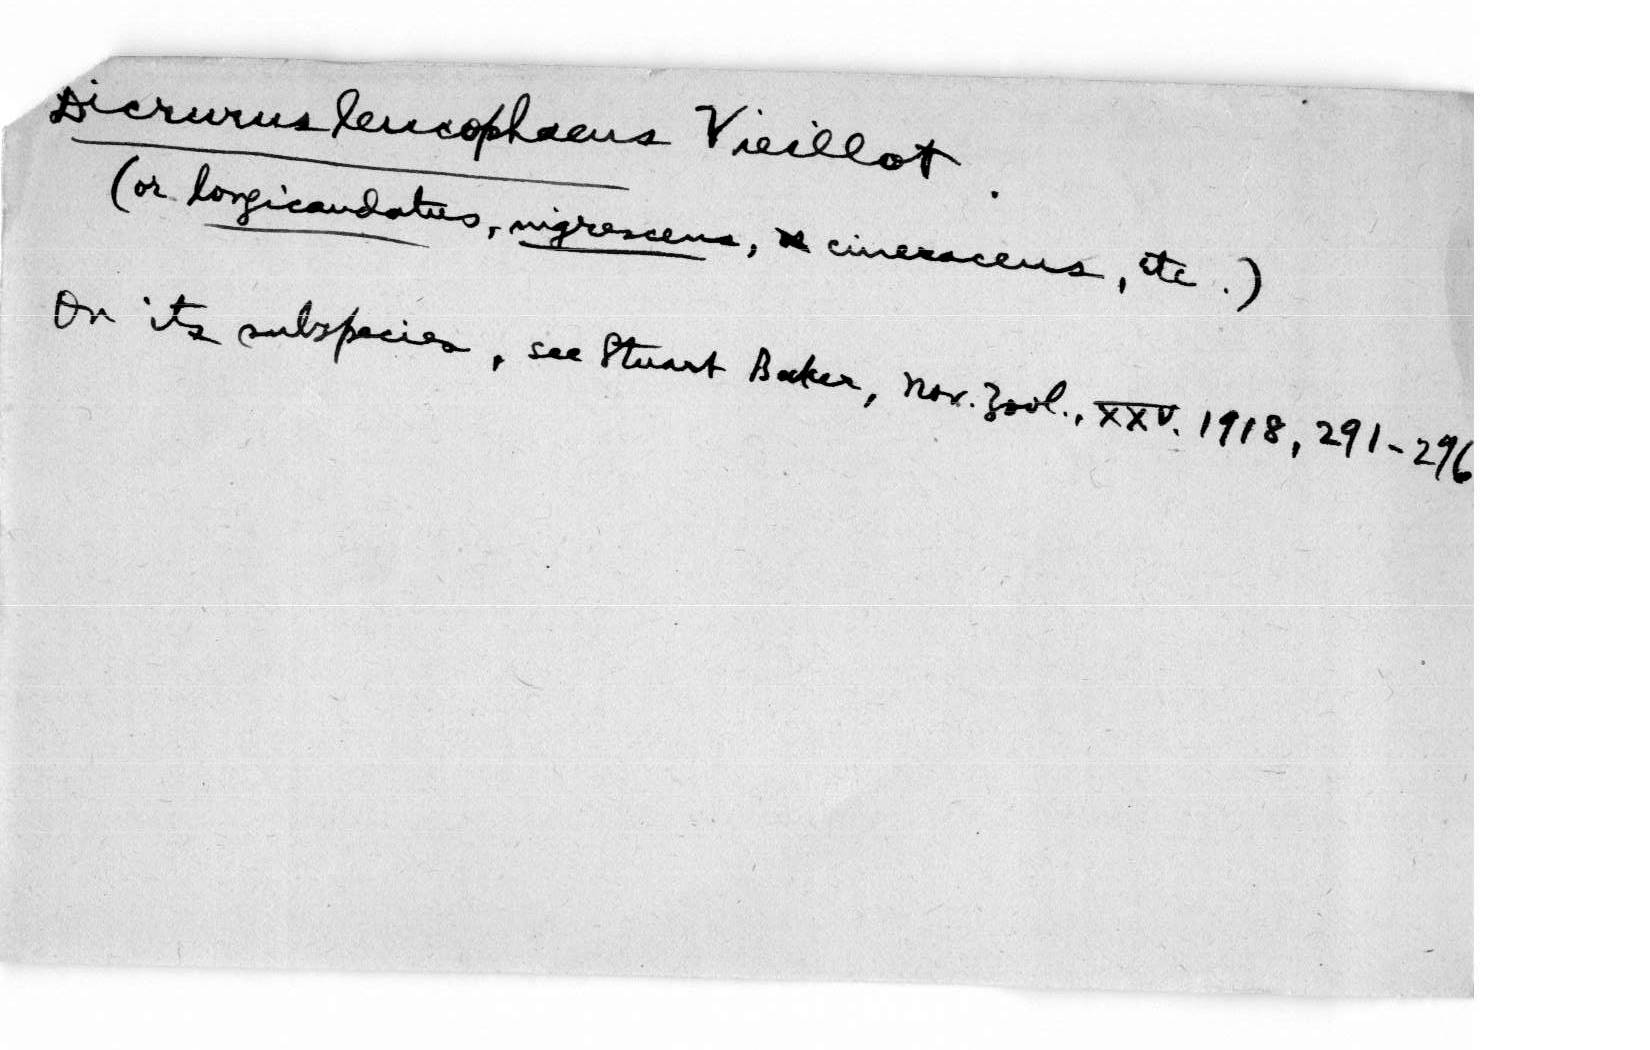 Dicrurus leucophaeus Vieillot.
(or longicaudatus, nigrescens, cineraceus, etc.)
On its subspecies, see Stuart Baker, Nov. Zool., XXV. 1918, 291-296